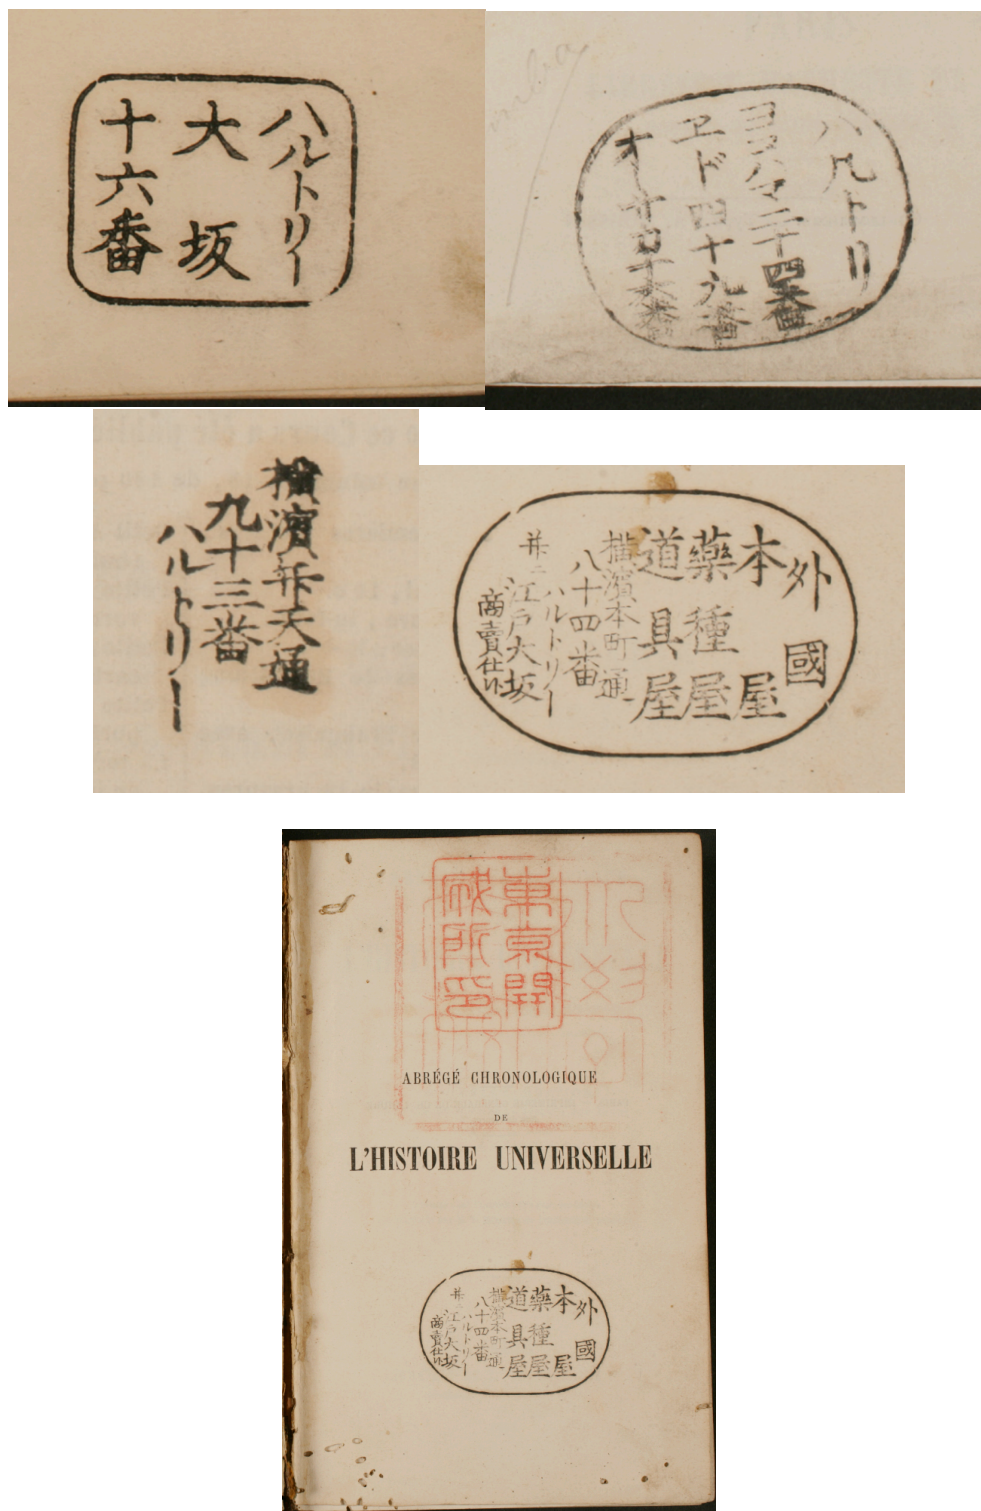 ハルトリー
大坂
十六番
ハルトリ
ヨコハマ二十四番
ヱド四十九番
オーサカ十六番
横濱弁天通
九十三番
ハルトリー
外國
本屋
藥種屋
道具屋
横濱本町通
八十四番
ハルトリー
并ニ江戸大坂
商賣仕候
東京開
成所印
ABRÉGÉ CHRONOLOGIQUE
DE
L'HISTOIRE UNIVERSELLE
外國
本屋
藥種屋
道具屋
横濱本町通
八十四番
ハルトリー
并ニ江戸大坂
商賣仕候